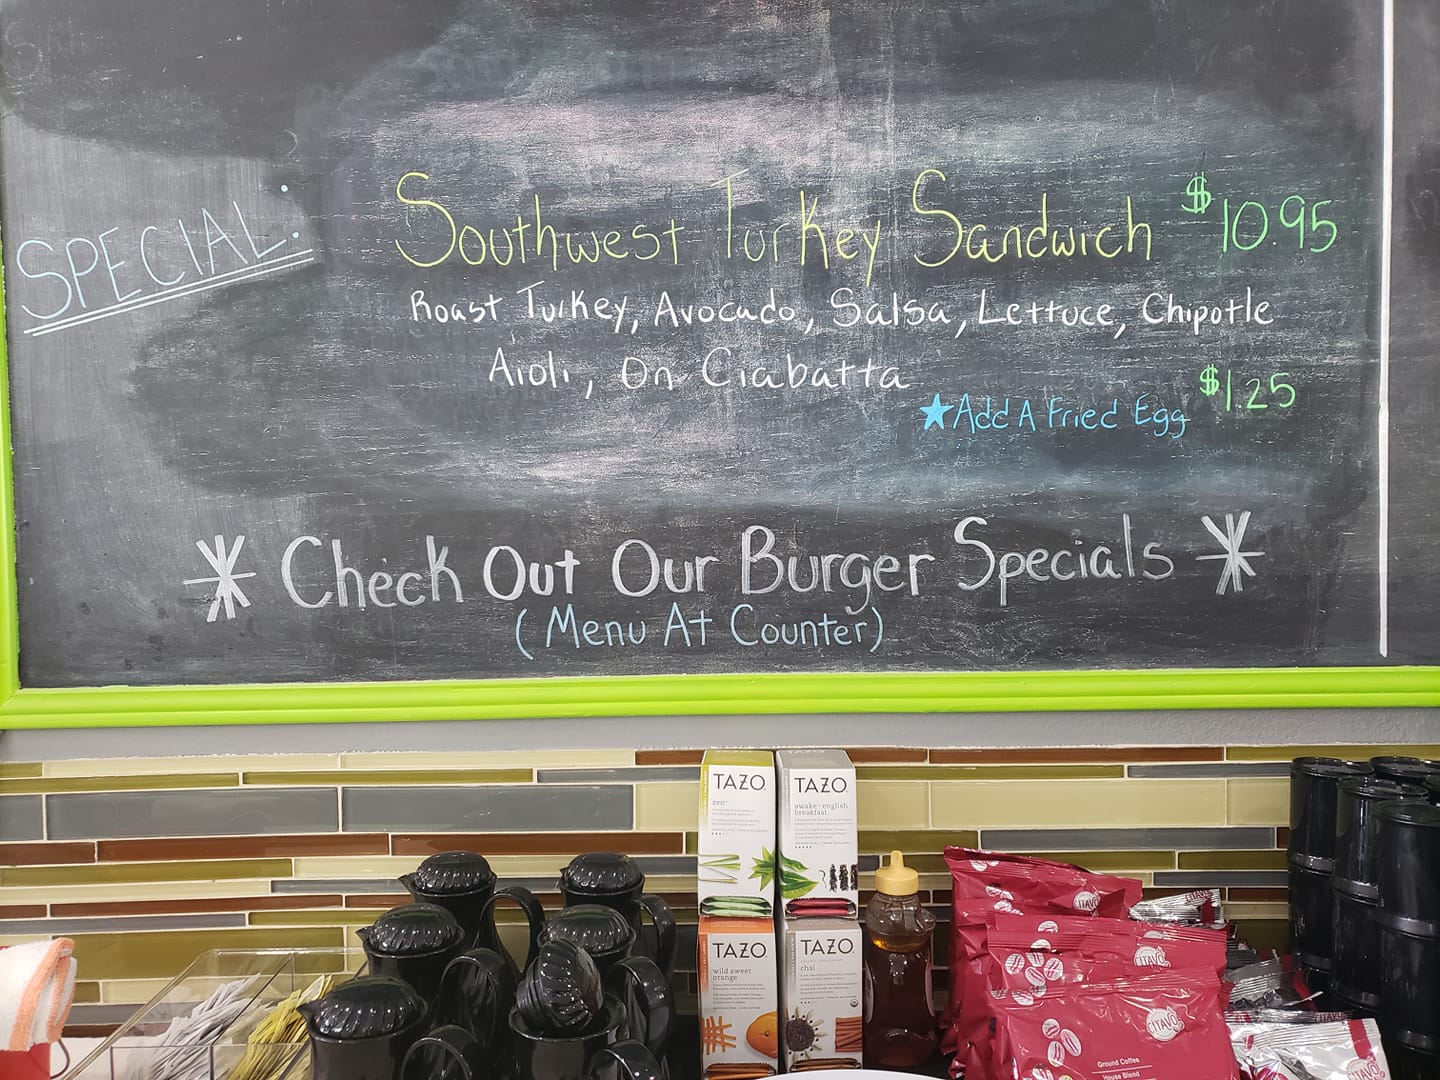 SPECIAL:
Southwest Turkey Sandwich $10.95
Roast Turkey, Avocado, Salsa, Lettuce, Chipotle
Aioli, On Ciabatta
★Add A Fried Egg $1.25
* Check Out Our Burger Specials *
(Menu At Counter)
TAZO
zen
TAZO
awake english
breakfast
TAZO
wild sweet
orange
TAZO
chai
Ground Coffee
House Blend